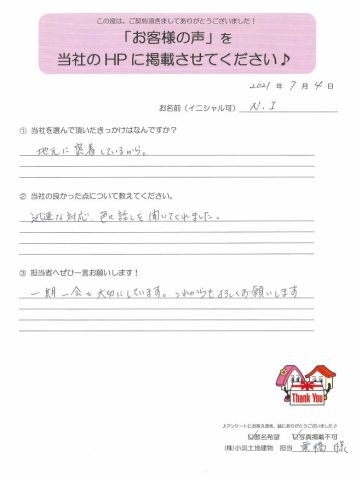 この度は、ご契約頂きましてありがとうございました！
「お客様の声」を
当社のHPに掲載させてください♪
2021年 7月 4日
お名前（イニシャル可） N.I
① 当社を選んで頂いたきっかけはなんですか？
地元に密着しているから。
② 当社の良かった点について教えてください。
迅速な対応、色々話しを聞いてくれました。
③ 担当者へぜひ一言お願いします！
一期一会を大切にしています。これからもよろしくお願いします
Thank You
♪アンケートにお答え頂き、誠にありがとうございました♪
☑匿名希望 ☑写真掲載不可
(株)小浜土地建物 担当 様